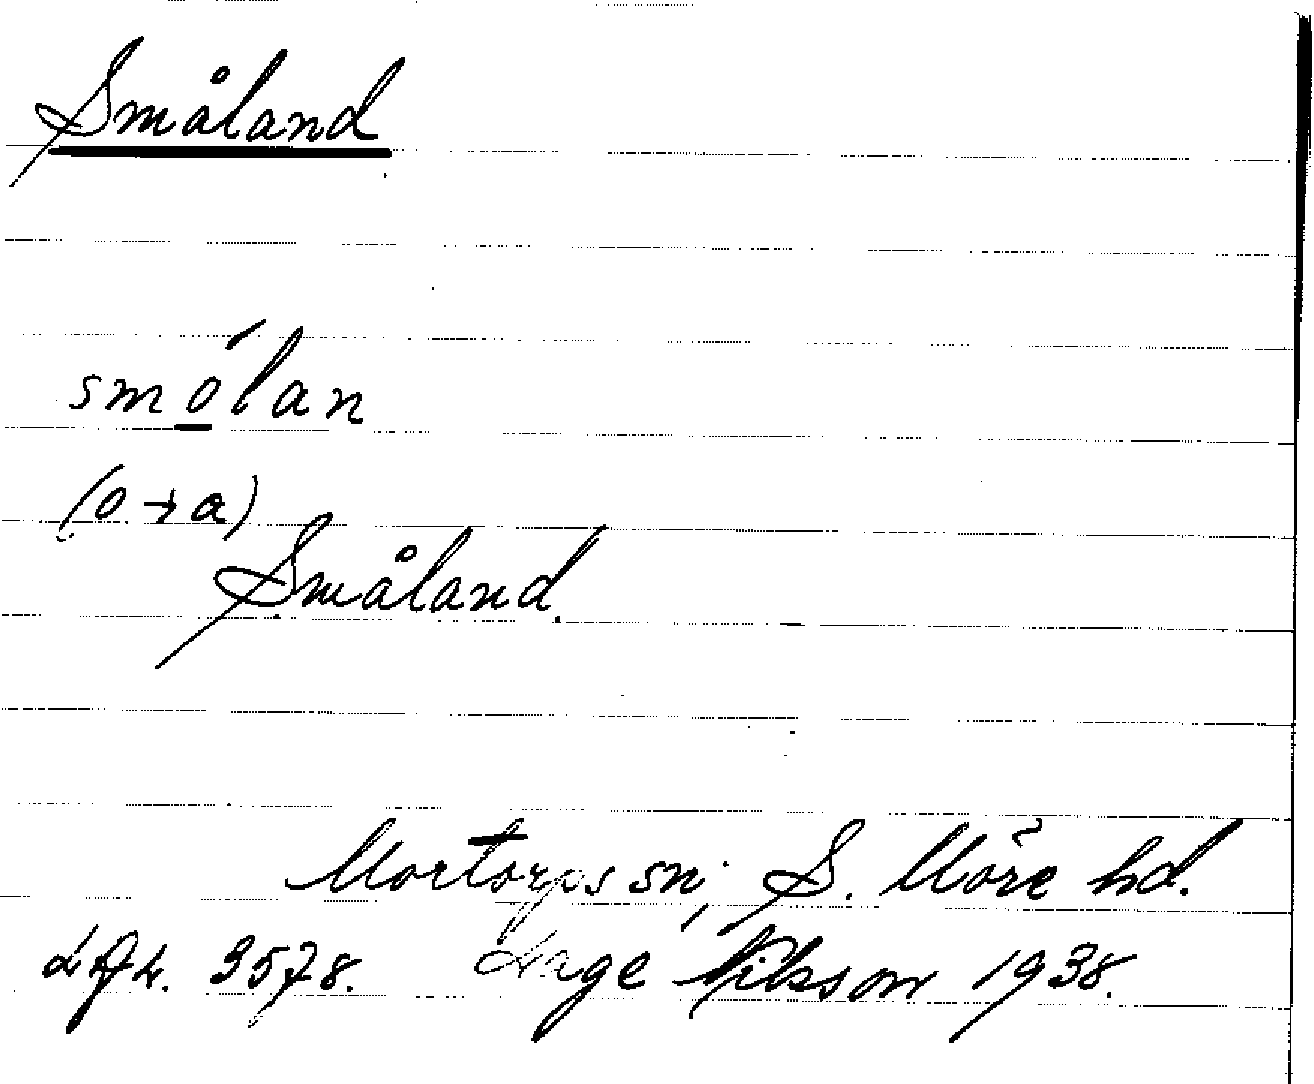 Småland
smo̲´lan
(o → a)
Småland.
Mortorps sn, S. Möre hd.
3578. Hage Nilsson 1938.